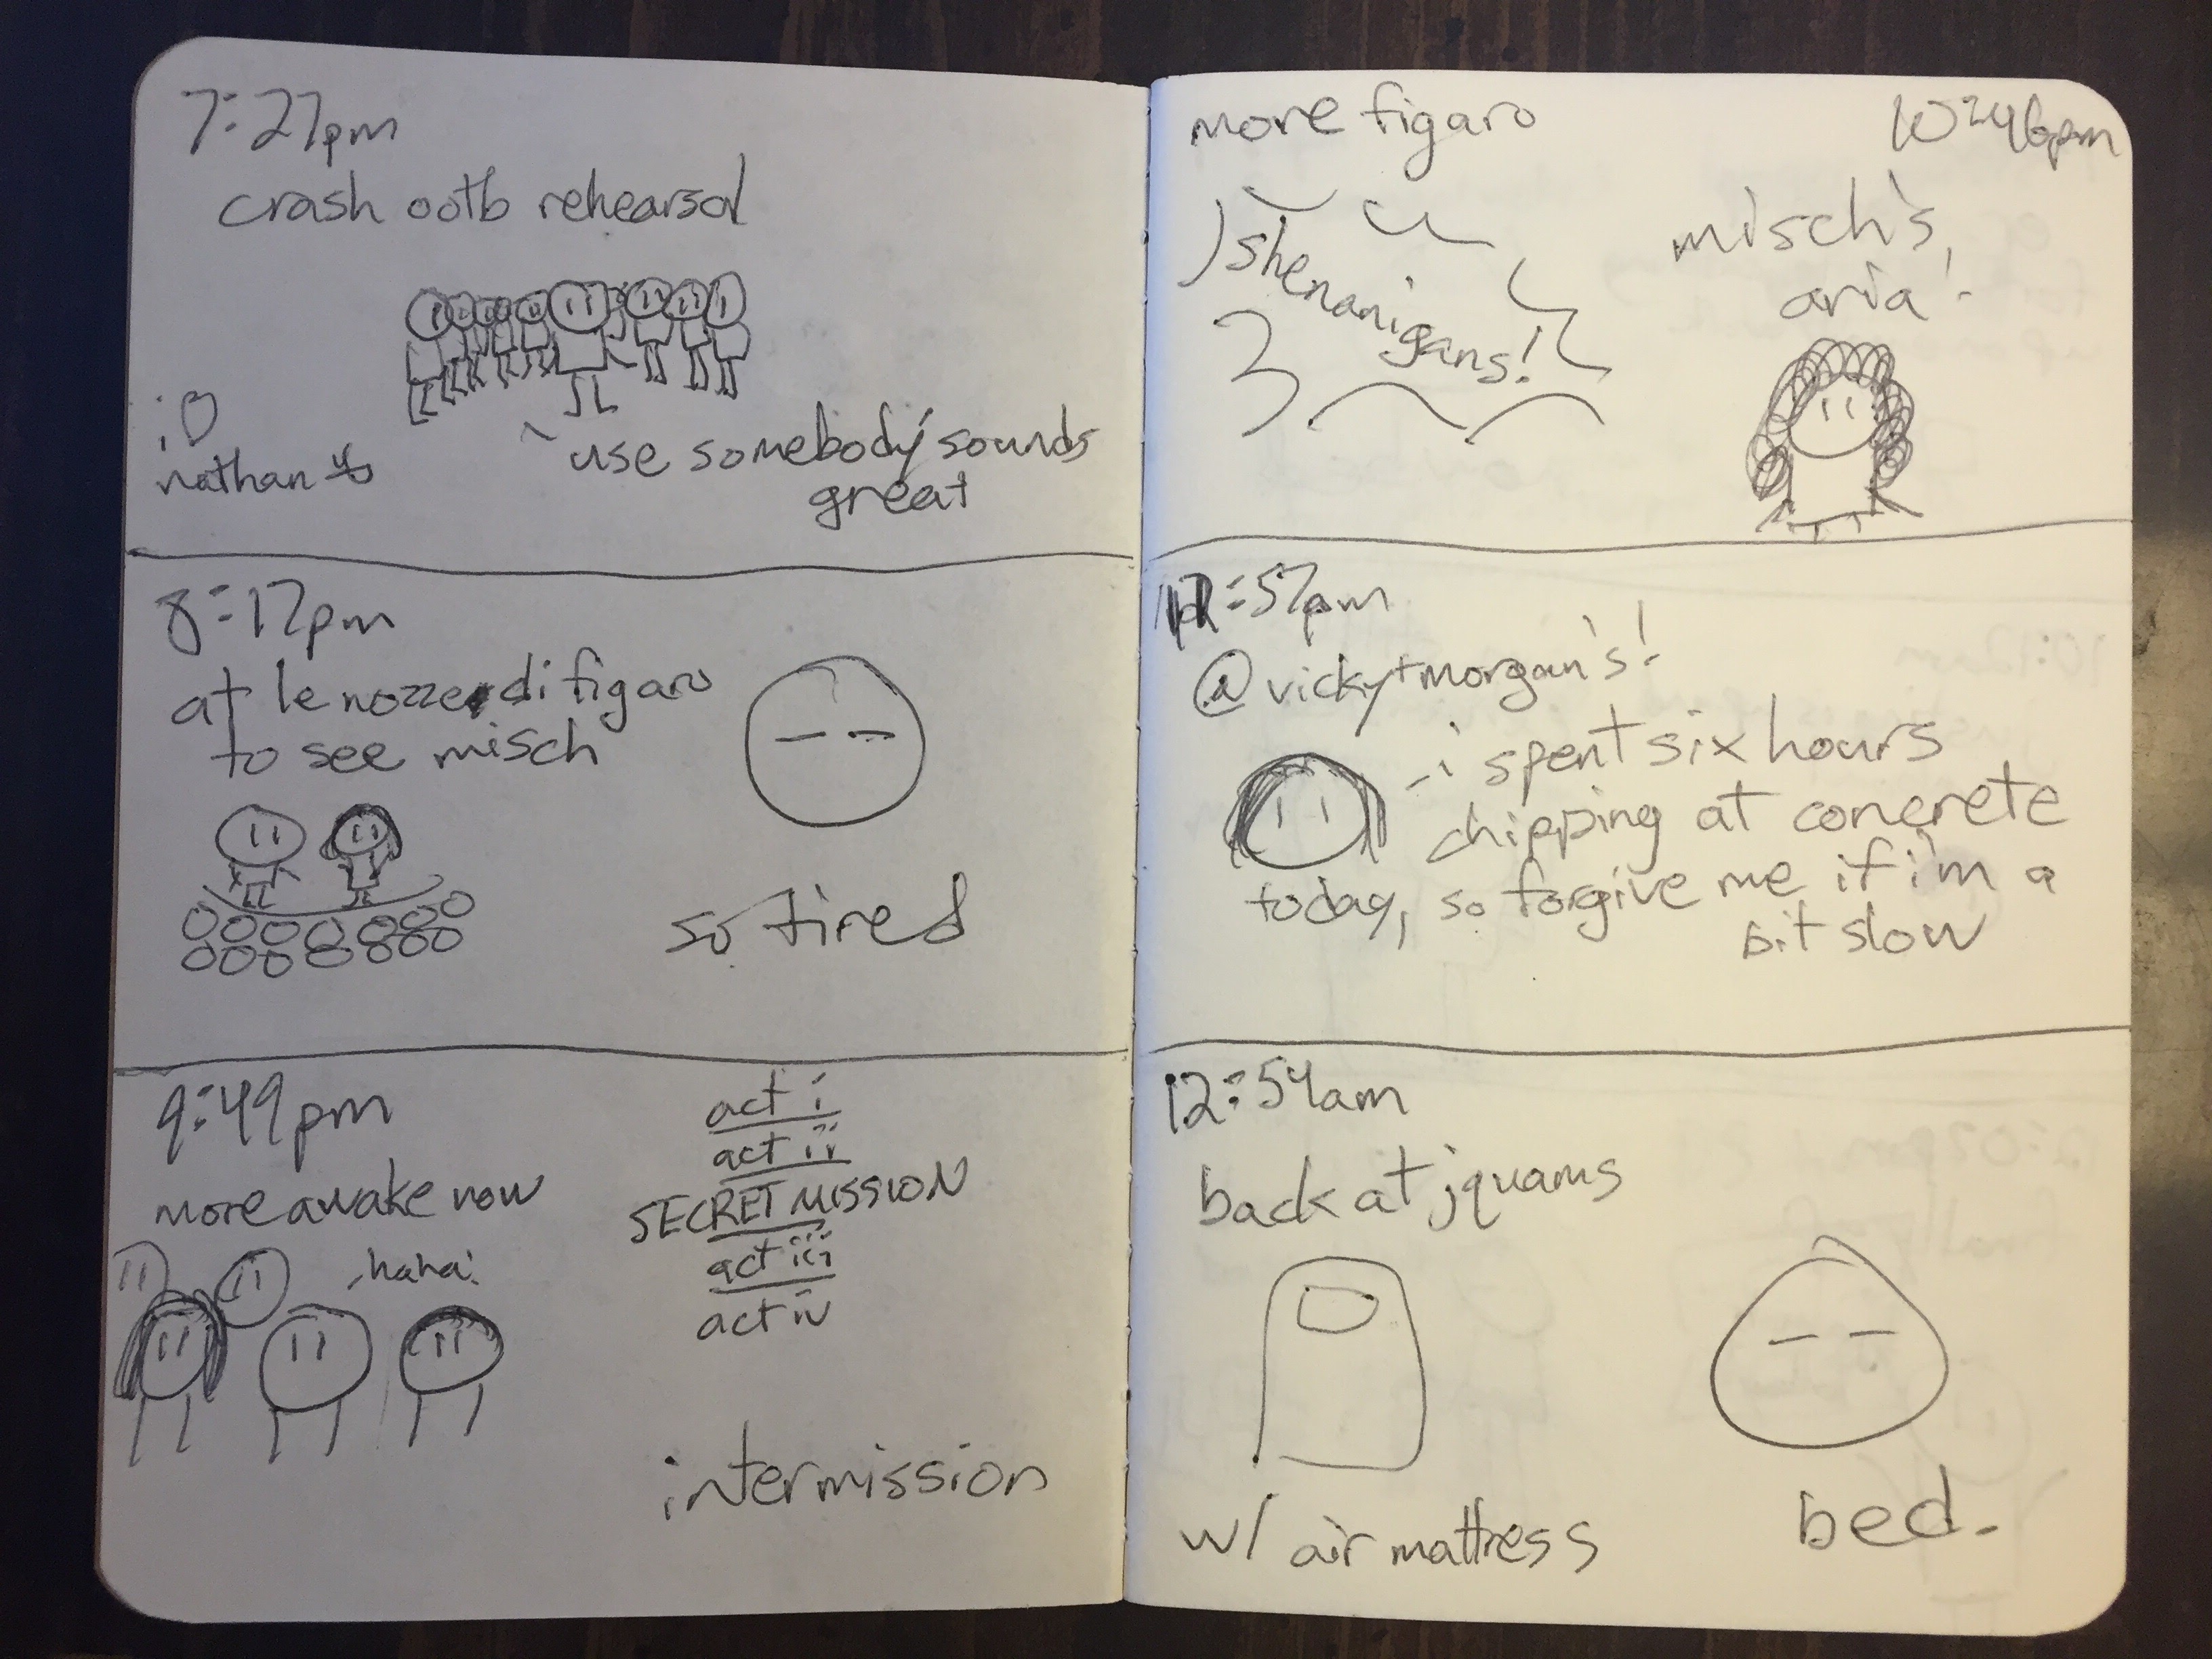 7:27pm
crash ootb rehearsal
:O
nathan yo
`use somebody' sounds
great
8:17pm
at le nozze di figaro
to see misch
so tired
9:49pm
more awake now
haha!
act i
act ii
SECRET MISSION
act iii
act iv
intermission
more figaro
10:46pm
shenanigans!
misch's
aria!
:57pm
@vicky+morgan's!
-i spent six hours
chipping at concrete
today, so forgive me if i'm a
bit slow
12:54am
back at jquams
w/ air mattress
bed.